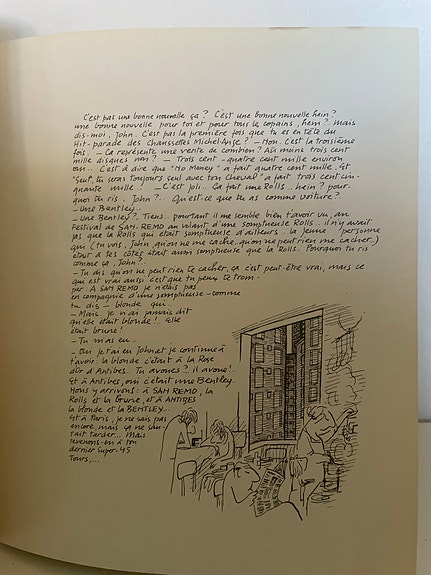 C'est pas une bonne nouvelle ça ? C'est une bonne nouvelle hein ?
une bonne nouvelle pour toi et pour tous les copains, hein ? Mais
dis-moi, John. C'est pas la première fois que tu es en tête du
Hit-parade des Chaussettes Michel-Ange ? — Non. C'est la troisième
fois. — Ca représente une vente de combien ? Au moins trois cent
mille disques non ? — Trois cent - quatre cent mille environ
oui.. C'est à dire que "No Money" a fait quatre cent mille. Et
"Seul, tu seras toujours seul avec ton cheval" a fait trois cent cin-
quante mille. — C'est joli.. Ça fait une Rolls.. hein ? pour-
quoi tu ris, John ?.. Qu'est-ce que tu as comme voiture ?
— Une Bentley.
— Une Bentley ?. Tiens.. pourtant il me semble bien t'avoir vu, au
Festival de SAN. REMO au volant d'une somptueuse Rolls.. il n'y avait
pas que la Rolls qui était somptueuse d'ailleurs.. la jeune personne
qui (tu vois, John, qu'on ne me cache.. qu'on ne peut rien me cacher.)
était à tes côtés était aussi somptueuse que la Rolls. Pourquoi tu ris
comme ça, John ?..
— Tu dis qu'on ne peut rien te cacher, ça c'est peut-être vrai, mais ce
qui est vrai aussi c'est que tu peux te trom-
per. A SAN REMO je n'étais pas
en compagnie d'une somptueuse - comme
tu dis — blonde qui..
— Mais je n'ai jamais dit
qu'elle était blonde !.. Elle
était brune !
— Tu m'as eu..
— Oui je t'ai eu John et je continue à
t'avoir. la blonde c'était à la Rose
d'Or d'Antibes. Tu avoues ? il avoue !..
Et à Antibes, oui c'était une Bentley.
Nous y arrivons : à SAN REMO, la
Rolls et la brune, et à ANTIBES
la blonde et la BENTLEY...
Et à Paris, je ne sais pas
encore, mais ça ne sau-
rait tarder... Mais
revenons-en à ton
dernier Super-45
Tours,...